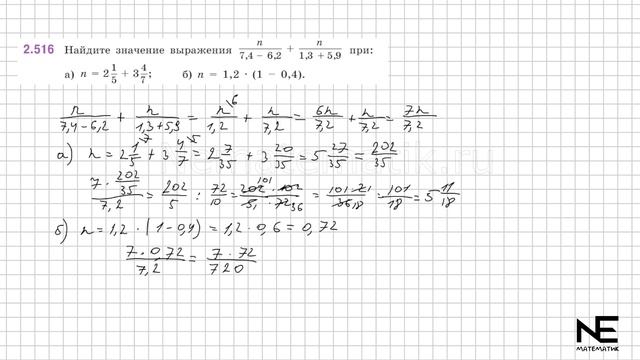 2.516 Найдите значение выражения n/(7,4 − 6,2) + n/(1,3 + 5,9) при:
а) n = 2 1/5 + 3 4/7; б) n = 1,2 · (1 − 0,4).
n/(7,4−6,2) + n/(1,3+5,9) = n/1,2 \6 + n/7,2 = 6n/7,2 + n/7,2 = 7n/7,2
а) n = 2 1/5 \7 + 3 4/7 \5 = 2 7/35 + 3 20/35 = 5 27/35 = 202/35
(7 · 202/35)/7,2 = 202/5 : 72/10 = 101 = 101 · 18 = 5 11/18
б) n = 1,2 · (1−0,4) = 1,2 · 0,6 = 0,72
7 · 0,72/7,2 = 7 · 72/720
NE
МАТЕМАТИК